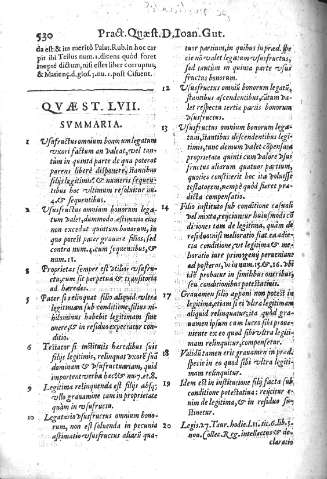 530 Pract. Quæst. D. Ioan. Gut.
da est & ita meritò Palat. Rub. in hoc car
pit ibi Tellus num. 1. dicens quòd foret
ineptè dictum, nisi esset liber corruptus,
& Marienç. d. glos. 3. nu. 1. post Cifuent.
QVÆST. LVII.
SVMMARIA.
1 Vsusfructus omnium bonorum legatum
vxori factum an valeat, vel tan
tùm in quinta parte de qua poterat
parens liberè disponere, stantibus
filijs legitimis: & numeris sequen
tibus hoc vltimum resoluitur in
4. & sequentibus.
2 Vsusfructus omnium bonorum lega
tum valet, dummodo æstimatio eius
non excedat quintum bonorum, in
quo potest pater grauare filios, sed
contra num. 4. cum sequentibus, &
num. 11.
4 Proprietas semper est vtilior vsufru
ctu, cum sit perpetua & transitoria
ad hæredes.
5 Pater si relinquat filio aliquid vltra
legitimam sub conditione, filius ni
hilominus habebit legitimam sine
onere, & in residuo expectatur con
ditio.
6 Testator si instituit hæredem suis
filijs legitimis, relinquat vxorē suā
dominam & vsufructuariam, quid
importent verba hæc & nu. 7. et 8.
9 Legitima relinquenda est filijs absq;
vllo grauamine tam in proprietate
quàm in vsufructu.
10 Legatario vsusfructus omnium bono
rum, non est soluenda in pecunia
æstimatio vsusfructus aliarū qua-
tuor partium, in quibus in præd. spe
cie nō valet legatum vsusfructus,
sed tantùm in quinta parte vsus
fructus bonorum.
12 Vsusfructus omniū bonorum legatū,
stantibus ascendentibus, dūtaxat va
let respectu tertiæ partis vsusfru
ctus.
13 Vsusfructus omnium bonorum lega-
tum, stantibus descendentibus legi-
timis, tunc demum valet cōpensata
proprietate quinti cum valore vsus
fructus aliarum quatuor partium,
quoties constiterit hoc ita voluisse
testatorem, nempè quòd fieret præ-
dicta compensatio.
14 Filio instituto sub conditione casuali
vel mixta, reijciatur huiusmodi cō
ditiones tam de legitima, quàm de
residuo: nisi melioratio fiat ea adie-
cta conditione, & legitima & me-
lioratio iure primogenij perueniant
ad posteros, vt in num. 15. & 16. vbi
idē probatur in similibus oneribus,
seu conditionibus potestatiuis.
17 Grauamen filio apponi non potest in
legitima, etiam si et vltra legitimam
aliquid relinquatur, ita quòd graua-
men ipsum cum lucro simul pro-
cedunt ex eo quod sibi vltra legiti-
mam relinquitur, compensetur.
18 Validū tamen erit grauamen in præd.
specie in eo quod sibi vltra legiti-
mam relinquitur.
19 Idem est in institutione filij facta sub
conditione potestatiua: reijcitur e-
nim de legitima, & in residuo su-
stinetur.
20 Legis 27. Taur. hodie l. 11. tit. 6. lib. 5.
nou. Collec. Reg. intellectus & de-
claratio